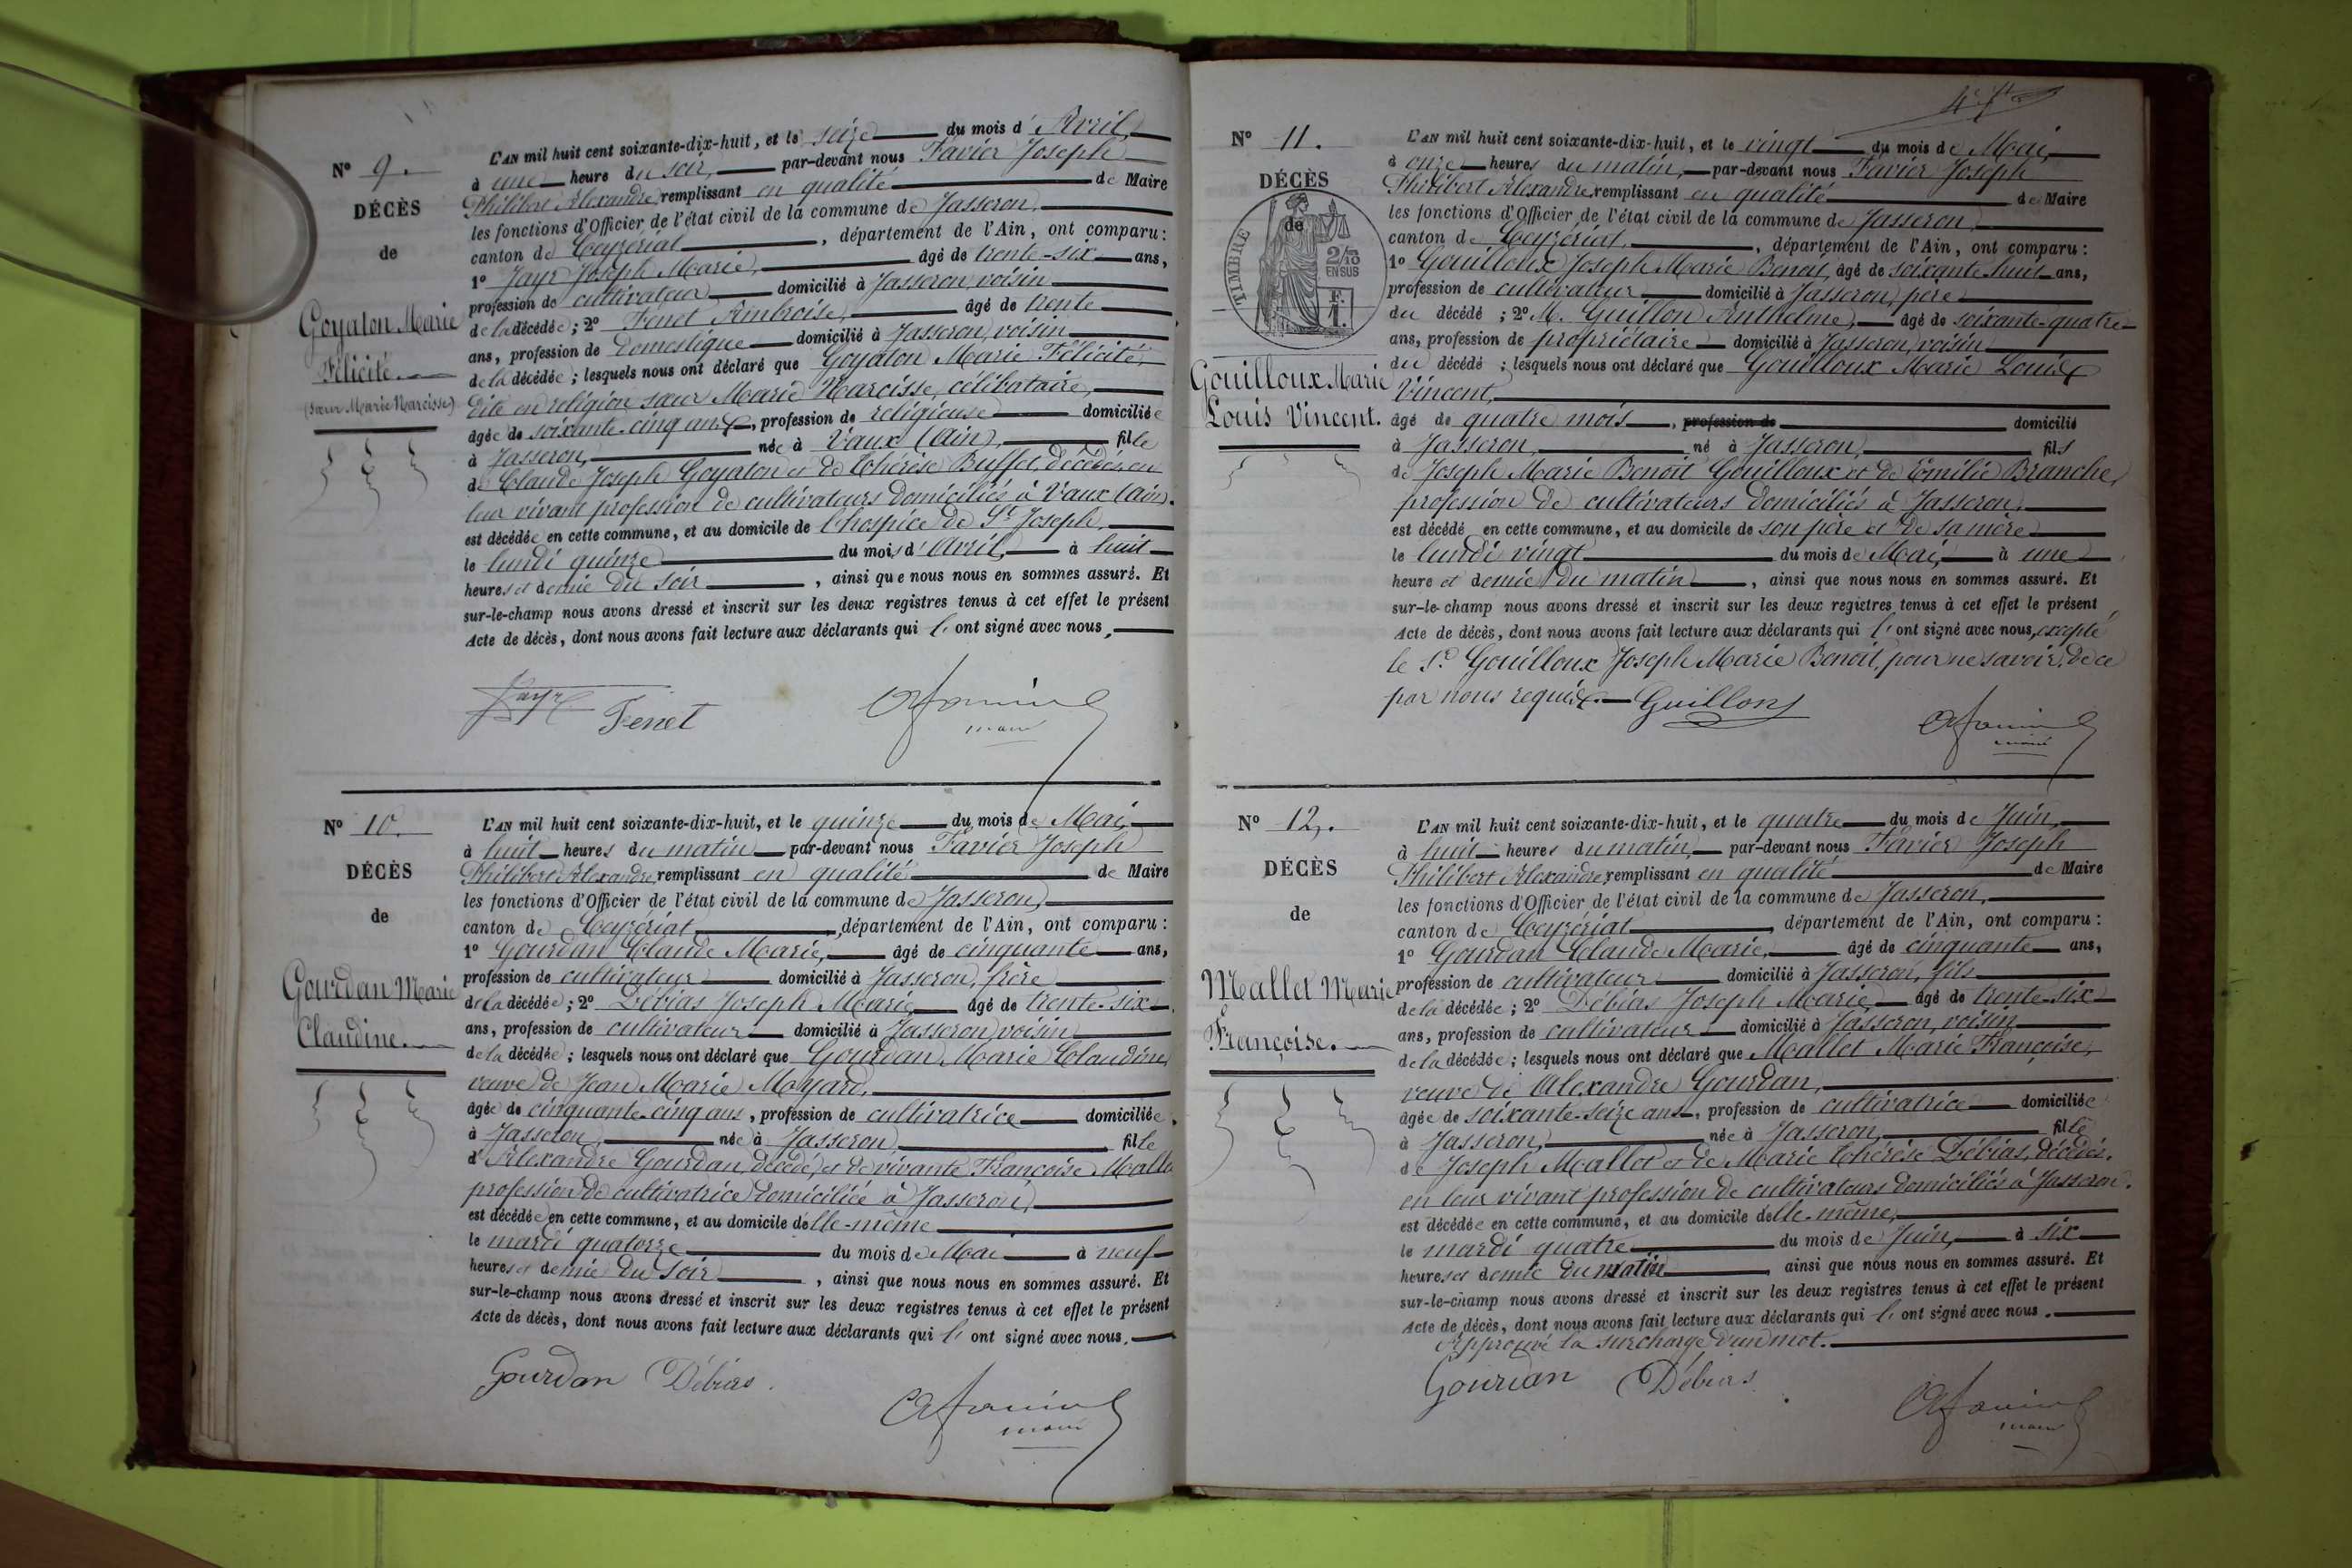 N° 9.
DÉCÈS
de
Goyaton Marie
Félicité.
(sœur Marie Narcisse)
L'AN mil huit cent soixante-dix-huit, et le seize du mois d'Avril,
à une heure du soir, par-devant nous Favier Joseph
Philibert Alexandre, remplissant en qualité de Maire
les fonctions d'Officier de l'état civil de la commune de Jasseron,
canton de Ceyzériat, département de l'Ain, ont comparu :
1° Jayr Joseph Marie, âgé de trente-six ans,
profession de cultivateur domicilié à Jasseron, voisin
de la décédée ; 2° Fenet Ambroise, âgé de trente
ans, profession de domestique domicilié à Jasseron, voisin
de la décédée ; lesquels nous ont déclaré que Goyaton Marie Félicité,
dite en religion sœur Marie Narcisse, célibataire,
âgée de soixante-cinq ans, profession de religieuse domiciliée
à Jasseron, née à Vaux (Ain), fille
de Claude Joseph Goyaton et de Thérèse Buffet, décédés en
leur vivant profession de cultivateurs domiciliés à Vaux (Ain).
est décédée en cette commune, et au domicile de l'hospice de St Joseph,
le lundi quinze du mois d'Avril, à huit
heures et demie du soir, ainsi que nous nous en sommes assuré. Et
sur-le-champ nous avons dressé et inscrit sur les deux registres tenus à cet effet le présent
Acte de décès, dont nous avons fait lecture aux déclarants qui l'ont signé avec nous,
Jayr Fenet
maire
N° 10.
DÉCÈS
de
Gourdan Marie
Claudine.
L'AN mil huit cent soixante-dix-huit, et le quinze du mois de Mai,
à huit heures du matin par-devant nous Favier Joseph
Philibert Alexandre, remplissant en qualité de Maire
les fonctions d'Officier de l'état civil de la commune de Jasseron,
canton de Ceyzériat, département de l'Ain, ont comparu :
1° Gourdan Claude Marie, âgé de cinquante ans,
profession de cultivateur domicilié à Jasseron, frère
de la décédée ; 2° Débias Joseph Marie, âgé de trente-six
ans, profession de cultivateur domicilié à Jasseron, voisin
de la décédée ; lesquels nous ont déclaré que Gourdan Marie Claudine,
veuve de Jean Marie Moyard,
âgée de cinquante-cinq ans, profession de cultivatrice domiciliée
à Jasseron, née à Jasseron, fille
d'Alexandre Gourdan, décédé, et de vivante Françoise Mall
profession de cultivatrice domiciliée à Jasseron,
est décédée en cette commune, et au domicile d'elle-même
le mardi quatorze du mois de Mai à neuf
heures et demie du soir, ainsi que nous nous en sommes assuré. Et
sur-le-champ nous avons dressé et inscrit sur les deux registres tenus à cet effet le présent
Acte de décès, dont nous avons fait lecture aux déclarants qui l'ont signé avec nous.
Gourdan Débias.
maire
N° 11.
DÉCÈS
de
TIMBRE
2/10
EN SUS
F.
1.
Gouilloux Marie
Louis Vincent.
L'AN mil huit cent soixante-dix-huit, et le vingt du mois de Mai,
à onze heures du matin, par-devant nous Favier Joseph
Philibert Alexandre, remplissant en qualité de Maire
les fonctions d'Officier de l'état civil de la commune de Jasseron,
canton de Ceyzériat, département de l'Ain, ont comparu :
1° Gouilloux Joseph Marie Benoit, âgé de soixante-huit ans,
profession de cultivateur domicilié à Jasseron, père
du décédé ; 2° M. Guillon Anthelme, âgé de soixante-quatre
ans, profession de propriétaire domicilié à Jasseron, voisin
du décédé ; lesquels nous ont déclaré que Gouilloux Marie Louis
Vincent,
âgé de quatre mois, profession de domicilié
à Jasseron, né à Jasseron, fils
de Joseph Marie Benoit Gouilloux et de Emilie Branche,
profession de cultivateurs domiciliés à Jasseron,
est décédé en cette commune, et au domicile de son père et de sa mère
le lundi vingt du mois de Mai, à une
heure et demie du matin, ainsi que nous nous en sommes assuré. Et
sur-le-champ nous avons dressé et inscrit sur les deux registres tenus à cet effet le présent
Acte de décès, dont nous avons fait lecture aux déclarants qui l'ont signé avec nous, excepté
le Sr Gouilloux Joseph Marie Benoit, pour ne savoir, de ce
par nous requis. Guillon
maire
N° 12.
DÉCÈS
de
Mallet Marie
Françoise.
L'AN mil huit cent soixante-dix-huit, et le quatre du mois de Juin,
à huit heures du matin, par-devant nous Favier Joseph
Philibert Alexandre, remplissant en qualité de Maire
les fonctions d'Officier de l'état civil de la commune de Jasseron,
canton de Ceyzériat, département de l'Ain, ont comparu :
1° Gourdan Claude Marie, âgé de cinquante ans,
profession de cultivateur domicilié à Jasseron, fils
de la décédée ; 2° Débias Joseph Marie, âgé de trente-six
ans, profession de cultivateur domicilié à Jasseron, voisin
de la décédée ; lesquels nous ont déclaré que Mallet Marie Françoise,
veuve de Alexandre Gourdan,
âgée de soixante-seize ans, profession de cultivatrice domiciliée
à Jasseron, née à Jasseron, fille
de Joseph Mallet et de Marie Thérèse Débias, décédés,
en leur vivant profession de cultivateurs domiciliés à Jasseron.
est décédée en cette commune, et au domicile d'elle-même,
le mardi quatre du mois de Juin, à six
heures et demie du matin ainsi que nous nous en sommes assuré. Et
sur-le-champ nous avons dressé et inscrit sur les deux registres tenus à cet effet le présent
Acte de décès, dont nous avons fait lecture aux déclarants qui l'ont signé avec nous.
Approuvé la surcharge d'un mot.
Gourdan Débias
maire